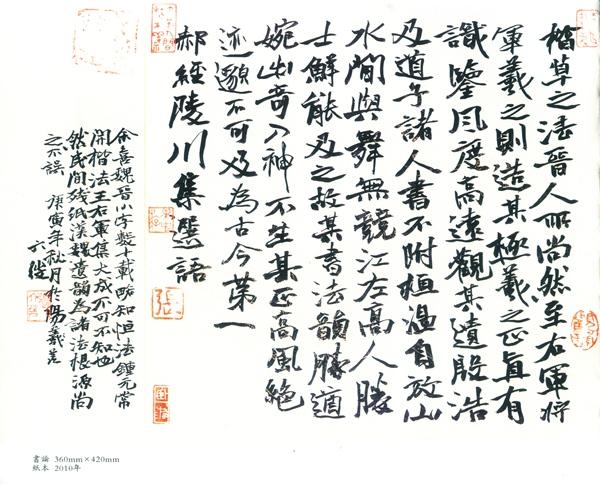 楷草之法晉人所尚然至右軍將
軍羲之則造其極羲之正真有
識鑒風度高遠觀其遺殷浩
及道子諸人書不附桓温自放山
水間與舞無競江左高人勝
士鮮能及之故其書法韻勝遒
婉出奇入神不失其正高風絕
迹邈不可及為古今第一
郝經陵川集語
余喜魏晉小字數十載略知恒法鍾元常
開楷法王右軍集大成不可不知也
然民間殘紙漢魏遺韻為諸法根源尚
之不誤 庚寅年秋月於陽羨
張
書論 360mm×420mm
紙本 2010年